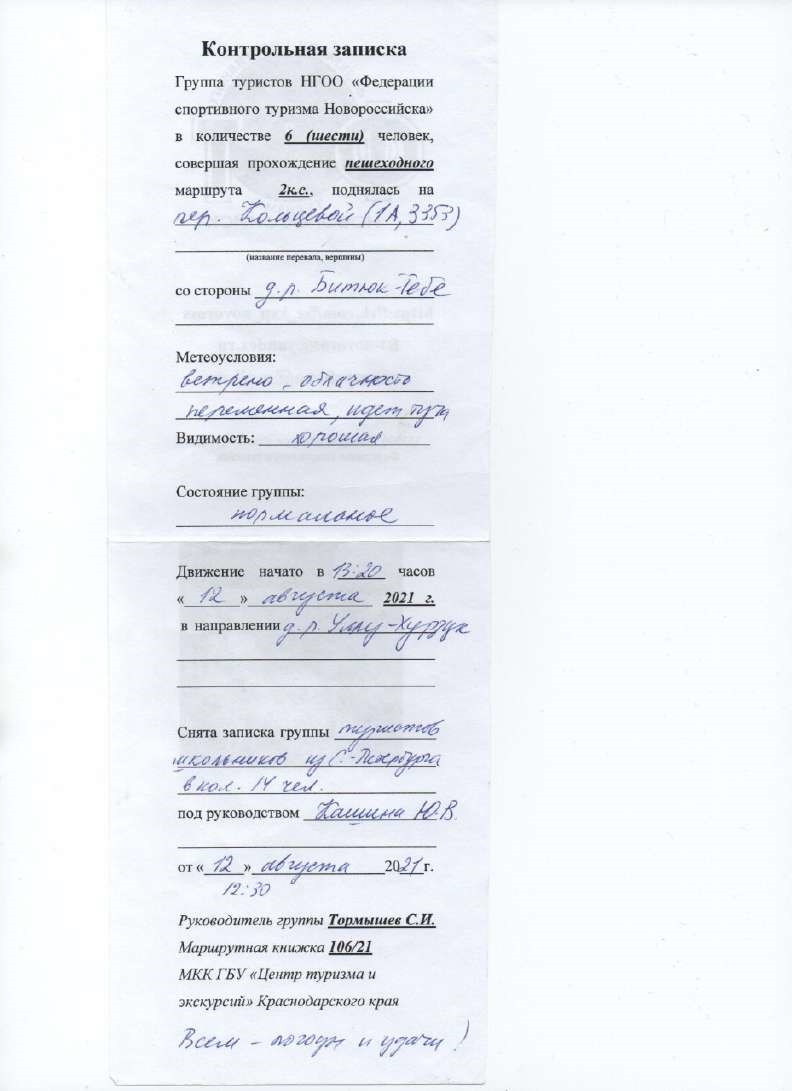 Контрольная записка
Группа туристов НГОО «Федерации
спортивного туризма Новороссийска»
в количестве 6 (шести) человек,
совершая прохождение пешеходного
маршрута 2к.с., поднялась на
пер. Кольцевой (1А, 3353)
(название перевала, вершины)
со стороны д.р. Битюк-Тебе
Метеоусловия:
ветрено, облачность
переменная, идет туча
Видимость: хорошая
Состояние группы:
нормальное
Движение начато в 13:20 часов
«12» августа 2021 г.
в направлении д.р. Уллу-Хурзук
Снята записка группы туристов
школьников из С.-Петербурга
в кол. 14 чел.
под руководством Кашина Ю.В.
от «12» августа 2021 г.
12:30
Руководитель группы Тормышев С.И.
Маршрутная книжка 106/21
МКК ГБУ «Центр туризма и
экскурсий» Краснодарского края
Всем - погоды и удачи!